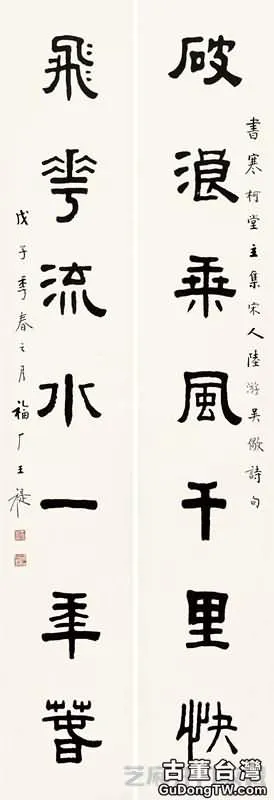 書寒柯堂主集宋人陸游吳儆詩句
破浪乘風千里快
飛華流水一年萅
戊子季春之月福厂王禔
芝麻
古董台灣
GuDongTW.com